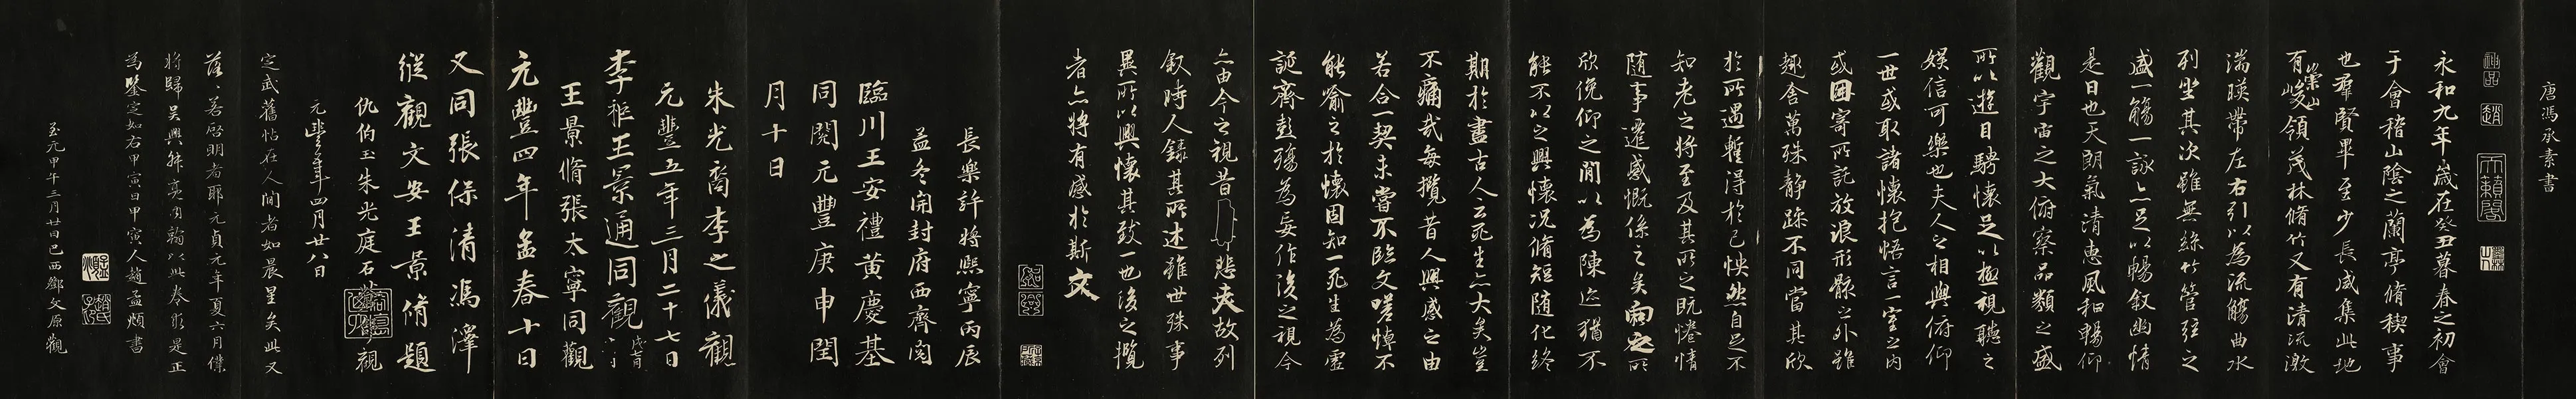 唐馮承素書
神品
趙
天籟閣
永和九年歲在癸丑暮春之初會
于會稽山陰之蘭亭脩稧事
也羣賢畢至少長咸集此地
有崇山峻領茂林脩竹又有清流激
湍暎帶左右引以為流觴曲水
列坐其次雖無絲竹管弦之
盛一觴一詠亦足以暢敘幽情
是日也天朗氣清惠風和暢仰
觀宇宙之大俯察品類之盛
所以遊目騁懷足以極視聽之
娛信可樂也夫人之相與俯仰
一世或取諸懷抱悟言一室之內
或因寄所託放浪形骸之外雖
趣舍萬殊靜躁不同當其欣
於所遇暫得於己怏然自足不
知老之將至及其所之既惓情
隨事遷感慨係之矣向之所
欣俛仰之閒以為陳迹猶不
能不以之興懷況脩短隨化終
期於盡古人云死生亦大矣豈
不痛哉每攬昔人興感之由
若合一契未嘗不臨文嗟悼不
能喻之於懷固知一死生為虛
誕齊彭殤為妄作後之視今
亦由今之視昔悲夫故列
敘時人錄其所述雖世殊事
異所以興懷其致一也後之攬
者亦將有感於斯文
長樂許將熙寧丙辰
孟冬開封府西齋閱
臨川王安禮黃慶基
同閱元豐庚申閏
月十日
朱光裔李之儀觀
元豐五年三月二十七日
李秬王景通同觀
王景脩張太寧同觀
元豐四年孟春十日
又同張保清馮澤
縱觀文安王景脩題
仇伯玉朱光庭石蒼舒觀
元豐年四月廿八日
定武舊帖在人間者如晨星矣此又
落落若啟明者耶元貞元年夏六月僕
將歸吳興叔亮內翰以此卷求是正
為鑒定如右甲寅日甲寅人趙孟頫書
至元甲午三月廿日巴西鄧文原觀